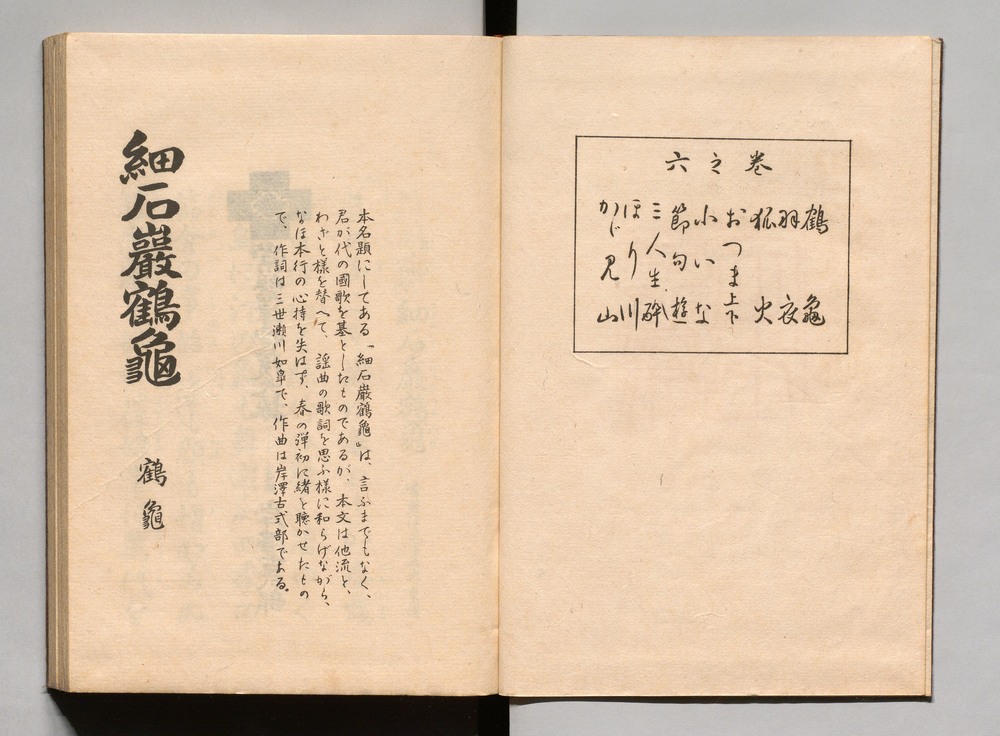 六之巻
鶴亀
羽衣
狐火
おつま上下
小いな
節句遊
三人生酔
ほり川
かじ見山
本名題にしてある「細石巌鶴亀」は、言ふまでもなく、
君が代の國歌を基としたものであるが、本文は他流と、
わざと様を替へて、謡曲の歌詞を思ふ様に和らげながら、
なほ本行の心持を失はず、春の弾初に緒を聴かせたもの
で、作詞は三世瀬川如皐で、作曲は岸澤古式部である。
細石巌鶴亀
鶴亀